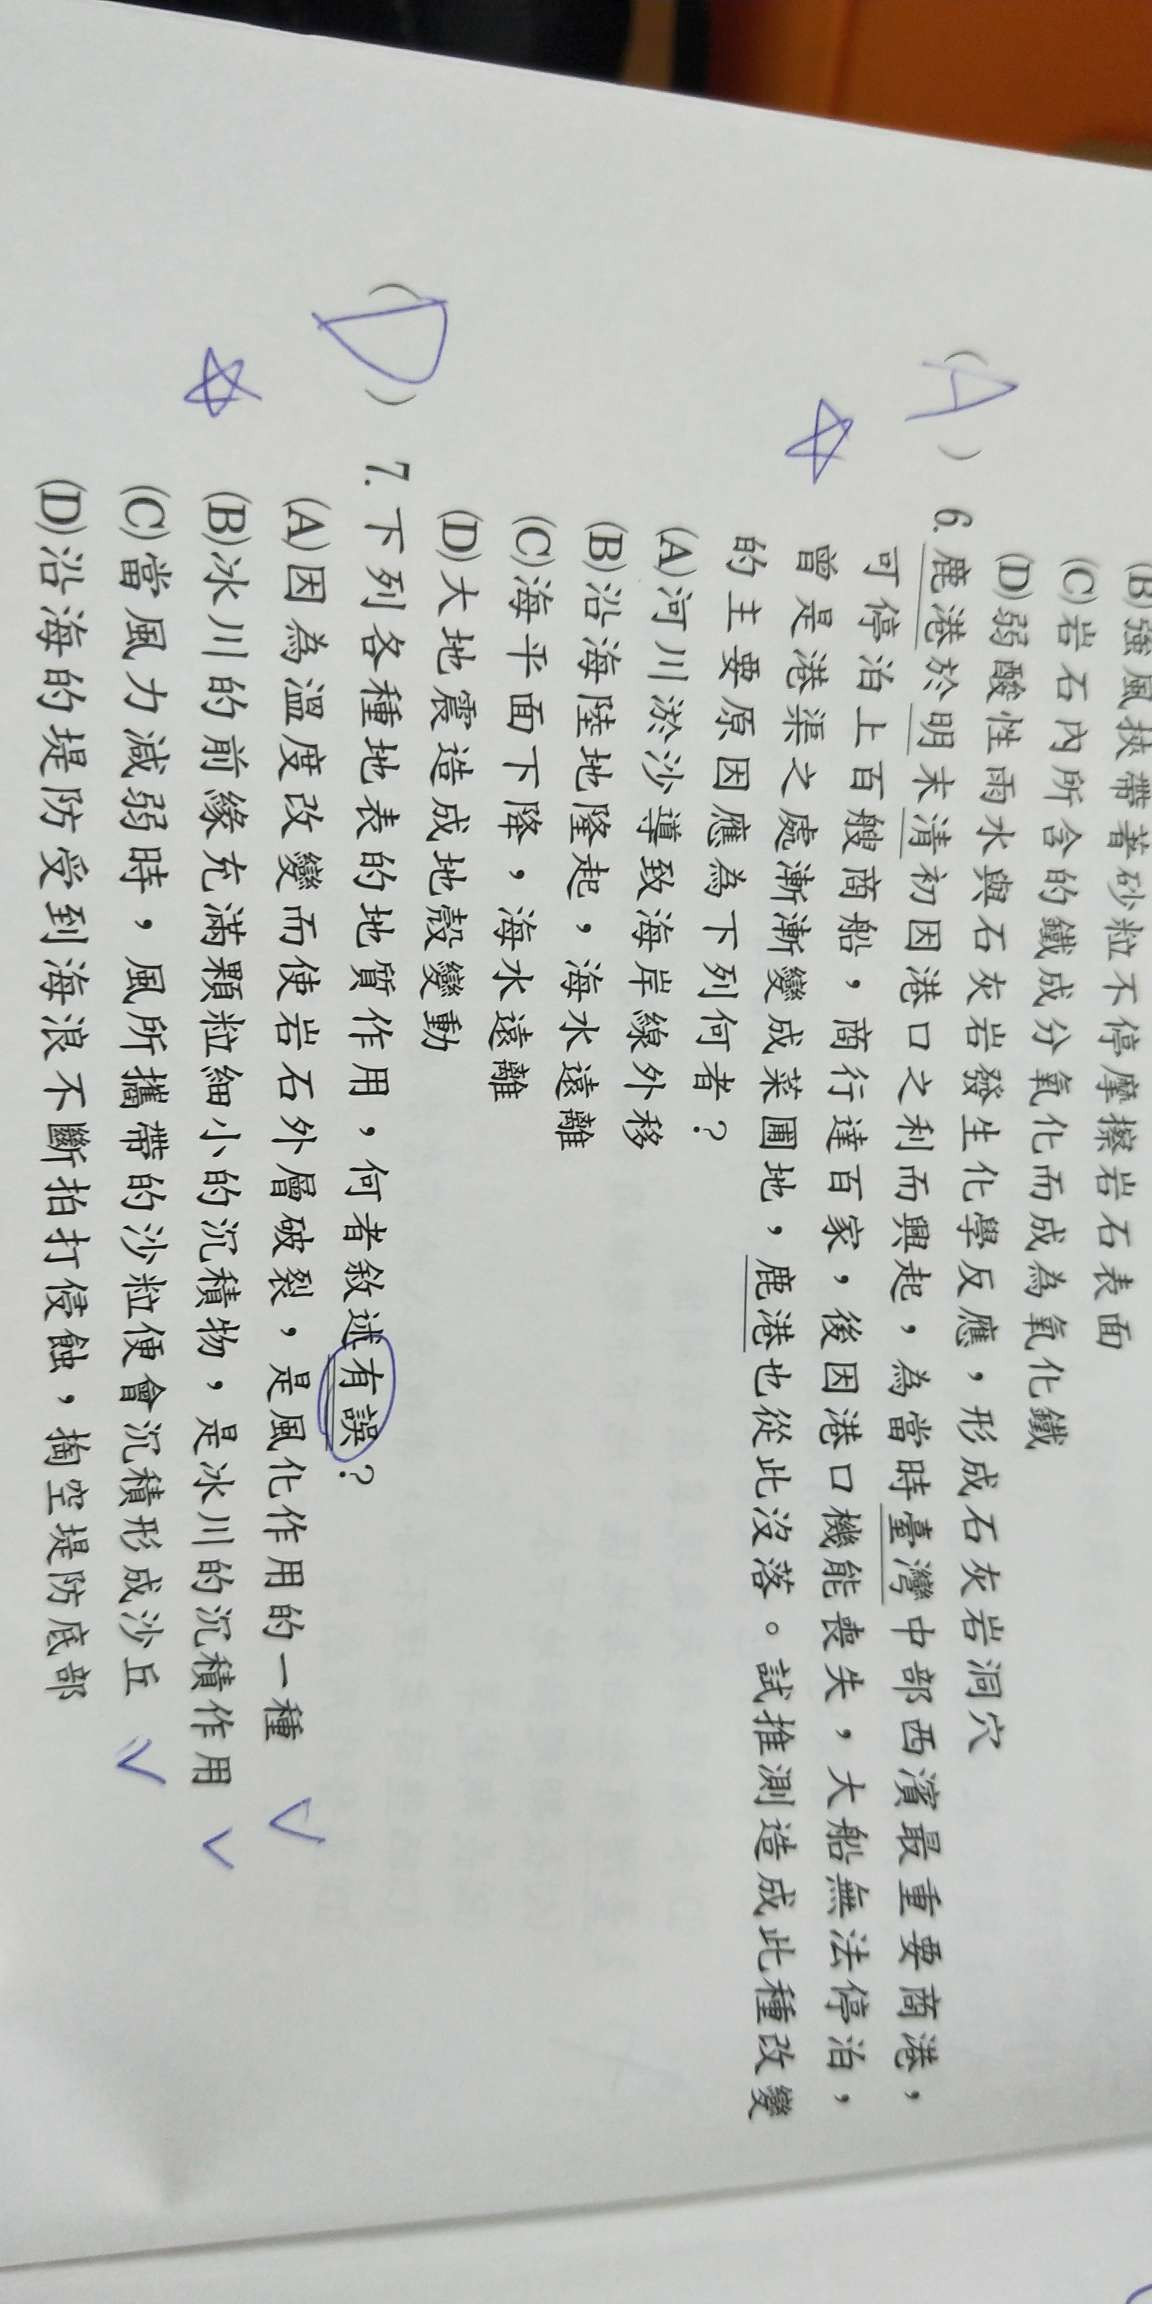 (B)強風挾帶著砂粒不停摩擦岩石表面
(C)岩石內所含的鐵成分氧化而成為氧化鐵
(D)弱酸性雨水與石灰岩發生化學反應，形成石灰岩洞穴
(A) 6. 鹿港於明末清初因港口之利而興起，為當時臺灣中部西濱最重要商港，
可停泊上百艘商船，商行達百家，後因港口機能喪失，大船無法停泊，
曾是港渠之處漸漸變成菜圃地，鹿港也從此沒落。試推測造成此種改變
的主要原因應為下列何者？
(A)河川淤沙導致海岸線外移
(B)沿海陸地隆起，海水遠離
(C)海平面下降，海水遠離
(D)大地震造成地殼變動
(D) 7. 下列各種地表的地質作用，何者敘述有誤？
(A)因為溫度改變而使岩石外層破裂，是風化作用的一種
(B)冰川的前緣充滿顆粒細小的沉積物，是冰川的沉積作用
(C)當風力減弱時，風所攜帶的沙粒便會沉積形成沙丘
(D)沿海的堤防受到海浪不斷拍打侵蝕，掏空堤防底部